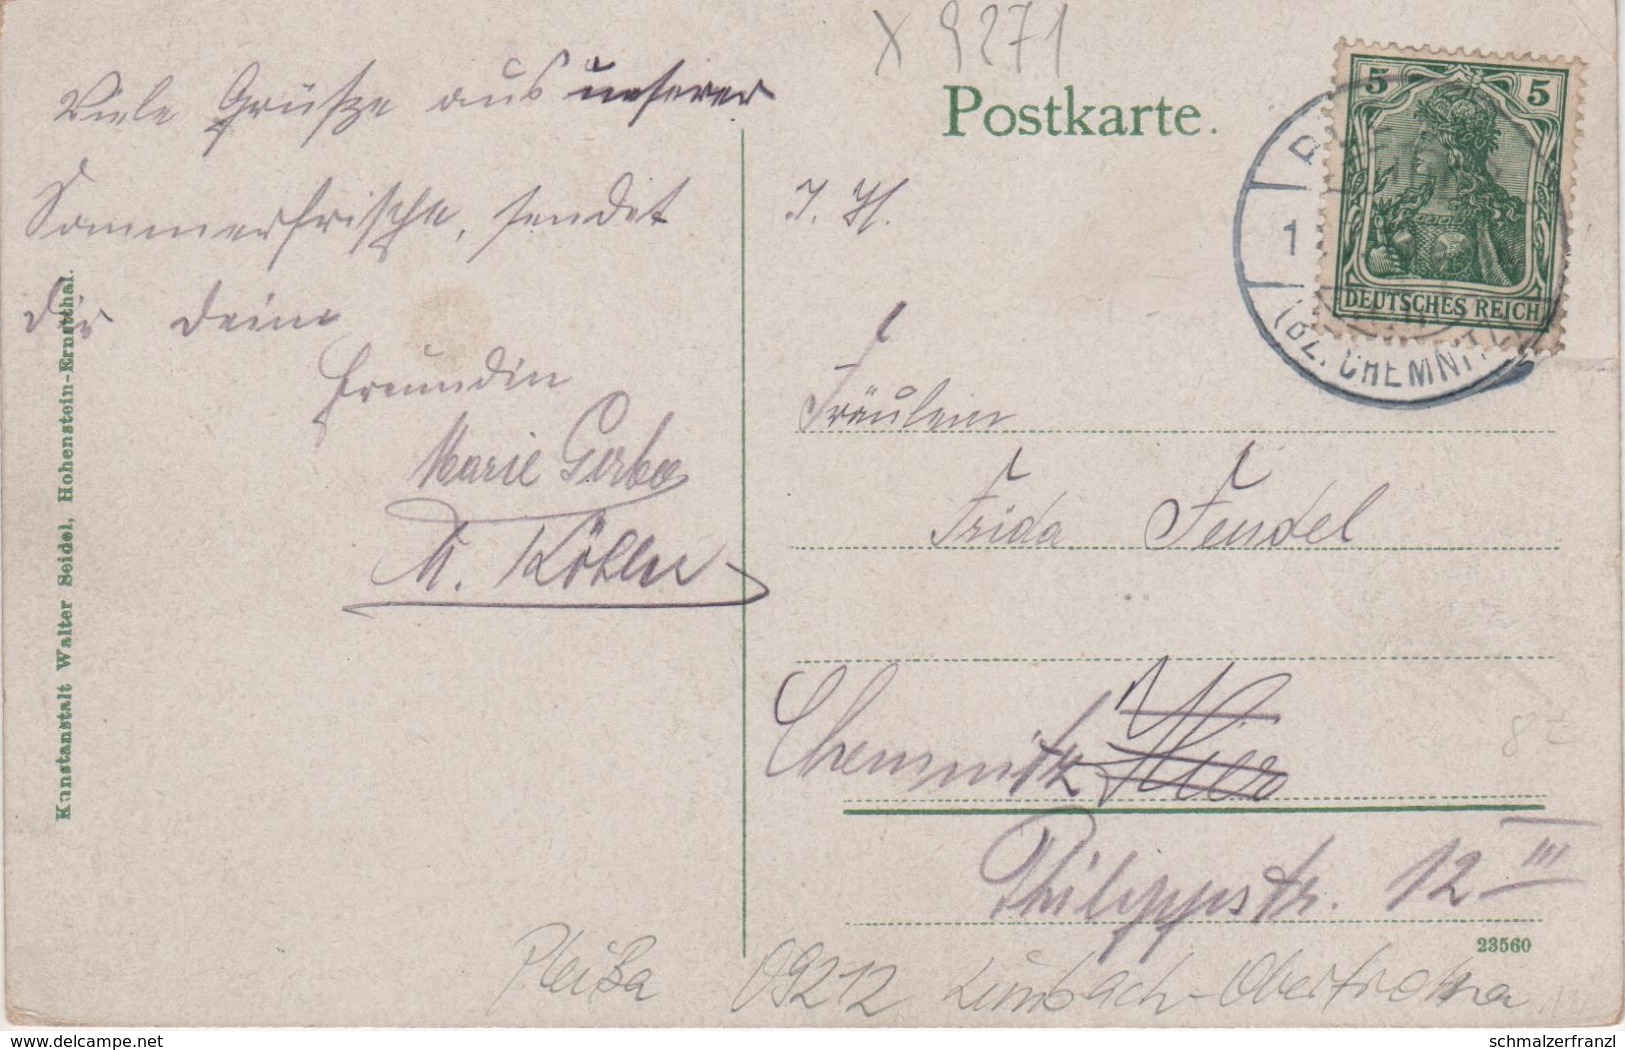 X 9271
Viele Grüße aus unserer
Sommerfrische, sendet
dir deine
Freundin
Marie Gerba
M. Köhler
Kunstanstalt Walter Seidel, Hohenstein-Ernstthal.
Postkarte.
5 5
DEUTSCHES REICH
1
(BZ. CHEMNITZ)
Fräulein
Frida Fendel
Chemnitz Hier
Philippstr. 12 III
23560
8Z
Pleißa 09212 Limbach-Oberfrohna
www.delcampe.net
schmalzerfranzl